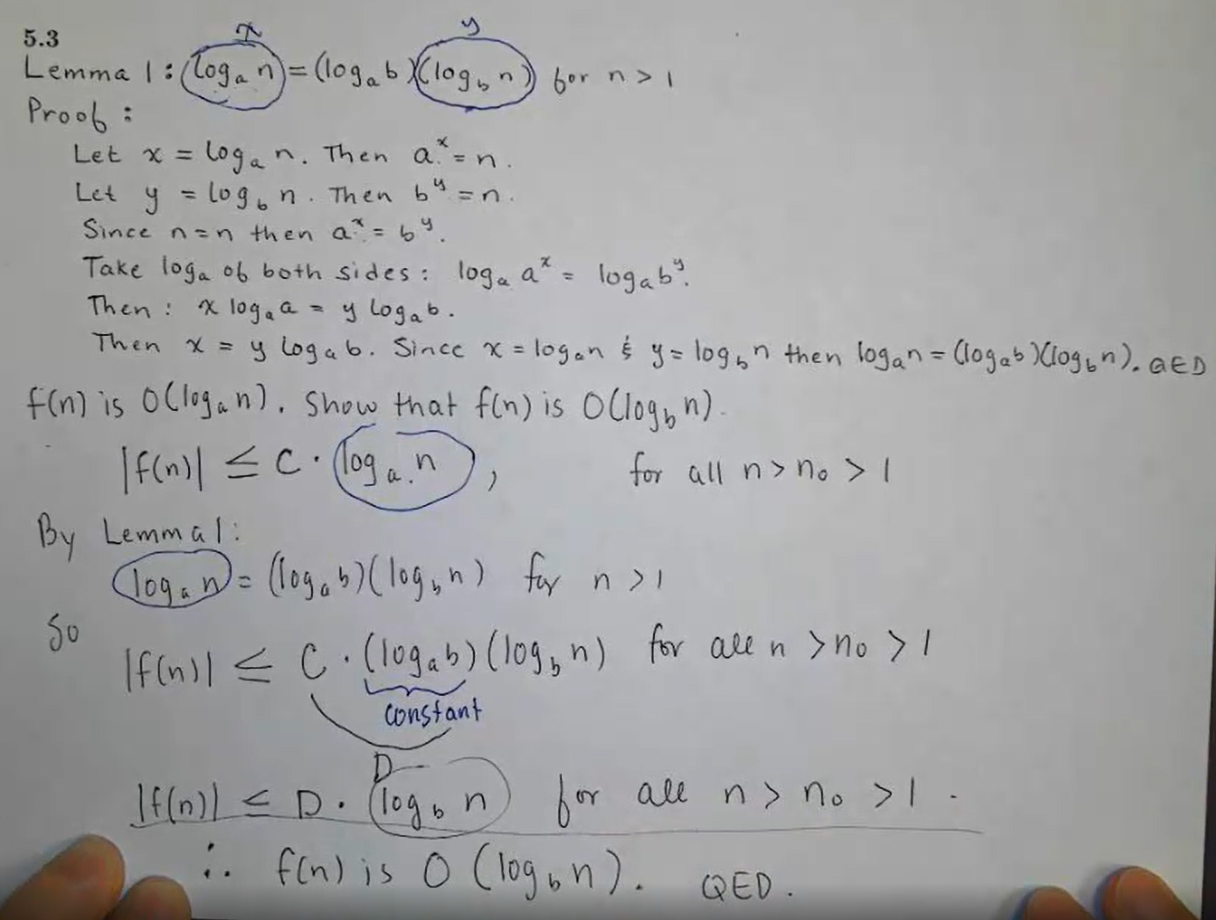 x y
5.3
Lemma 1: logₐ n = (logₐ b)(log_b n) for n > 1
Proof:
Let x = logₐ n. Then aˣ = n.
Let y = log_b n. Then bʸ = n.
Since n = n then aˣ = bʸ.
Take logₐ of both sides: logₐ aˣ = logₐ bʸ.
Then: x logₐ a = y logₐ b.
Then x = y logₐ b. Since x = logₐ n & y = log_b n then logₐ n = (logₐ b)(log_b n). QED
f(n) is O(logₐ n). Show that f(n) is O(log_b n).
|f(n)| ≤ C · logₐ n, for all n > n₀ > 1
By Lemma 1:
logₐ n = (logₐ b)(log_b n) for n > 1
So
|f(n)| ≤ C · (logₐ b)(log_b n) for all n > n₀ > 1
constant
D
|f(n)| ≤ D · log_b n for all n > n₀ > 1.
∴ f(n) is O(log_b n). QED.